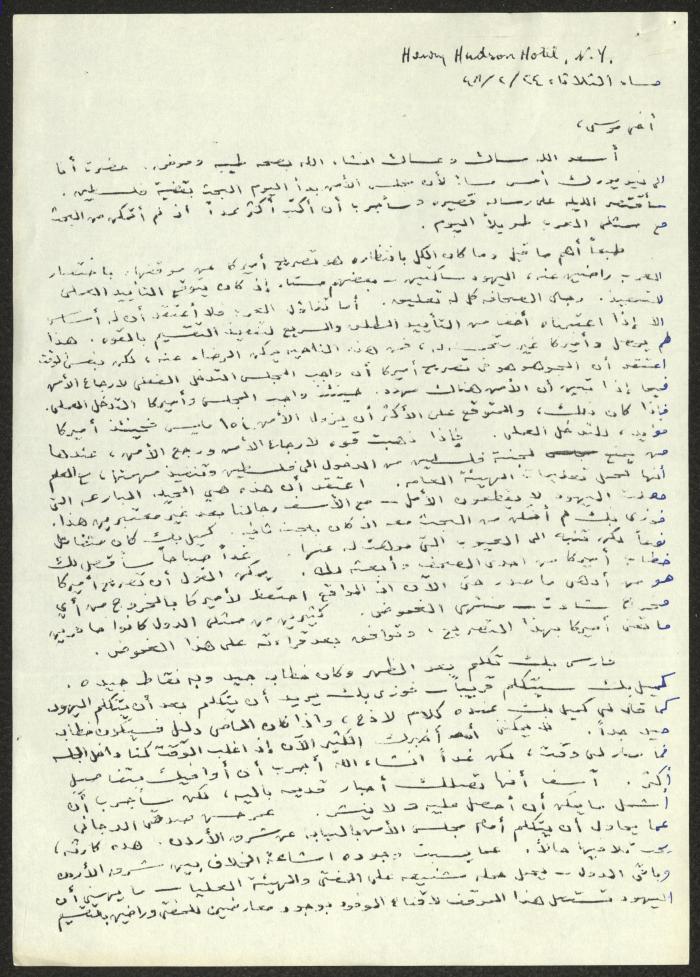 Henry Hudson Hotel, N.Y.
مساء الثلاثاء ٢٤/٢/٤٨
أخي موسى،
أسعد الله مساك وعساك انشاء الله بصحه طيبه وموفق. حضرت أنا
الى نيويورك أمس مساءً لأن مجلس الأمن بدأ اليوم البحث بقضية فلسطين.
سأقتصر الليله على رساله قصيره وسأجرب أن أكتب أكثر غداً اذ لم أتمكن من البحث
مع ممثلي العرب طويلاً اليوم.
طبعاً أهم ما قيل وما كان الكل بانتظاره هو تصريح أميركا عن موقفها. باختصار
العرب راضين عنه، اليهود ساكتين - بعضهم مستاء إذ كان يتوقع التأييد العملي
للتنفيذ. ورجال الصحافه كل له تعليقه. أما تفاؤل العرب فلا أعتقد أن له أساس
الا إذا اعتبرناه أخف من التأييد المطلق والسريع لتنفيذ التقسيم بالقوه. هذا
لم يحصل وأميركا غير، فمن هذه الناحيه يمكن الرضاء عنه، لكن بنفس الوقت
أعتقد أن الجوهر هو في تصريح أميركا أن واجب المجلس التدخل الفعلي لارجاع الأمن
فيما إذا تبين أن الأمن هناك مهدد. حينئذ واجب المجلس وأميركا التدخل العملي.
فإذا كان ذلك، والمتوقع على الأكثر أن يزول الأمن ١٥ مايس فحينئذ أميركا
مؤيده للتدخل العملي. فإذا ذهبت قوه لارجاع الأمن ورجع الأمن، عندها
من يمنع لجنة فلسطين من الدخول الى فلسطين وتنفيذ مهمتها، مع العلم
أنها تحمل تعليمات الهيئة العامه. أعتقد أن هذه هي الحيله البارعه التي
جعلت اليهود لا يقطعون الأمل - مع الأسف رجالنا بعد غير معتبرين هذا.
فوزي بك لم أتمكن من البحث معه اذ كان بلجنة ثانيه. كميل بك كان متفائل
نوعاً لكن تنبه الى العيوب التي موهت له عنها. غداً صباحاً سأقص لك
خطاب أميركا من احدى الصحف وأبعثه لك. يمكن القول أن تصريح أميركا
هو من أدهى ما صدر حتى الآن اذ الواقع احتفظ لأميركا بالخروج من أي
مخرج شاءت - منتهى الغموض. كثيرين من ممثلي الدول كانوا حائرين
ما تعني أميركا بهذا التصريح، وتوافق بعد قراءته على هذا الغموض.
فارس بك تكلم بعد الظهر وكان خطابه جيد وبه نقاط جيده.
كميل بك سيتكلم قريباً - فوزي بك يريد أن يتكلم بعد أن يتكلم اليهود
كما قال لي كميل بك عنده كلام لاذع، واذا كان الماضي دليل فسيكون خطابه
جيد جداً. لا يمكنني أن أخبرك الكثير الآن إذ اغلب الوقت كنا داخل الجلسه
فما صار لي وقت، لكن غداً انشاء الله أجرب أن أوافيك بتفاصيل
أكثر. آسف أنها تصلك أخبار قديمه باليه، لكن سأجرب أن
أشمل ما يمكن أن أحصل عليه ولا ينشر. عمر حسن صدقي الدجاني
عما يحاول أن يتكلم أمام مجلس الأمن بالنيابه عن شرق الأردن. هذه كارثه،
يجب تلافيها حالاً. عما يسبب وجوده اشاعة الخلاف بين شرق الأردن
وباقي الدول - يحمل حمله شنيعه على المفتي والهيئة العليا - ما يهمني أن
اليهود تستعمل هذا الموقف لاقناع الوفود بوجود معارضين للمفتي وراضين بالتقسيم